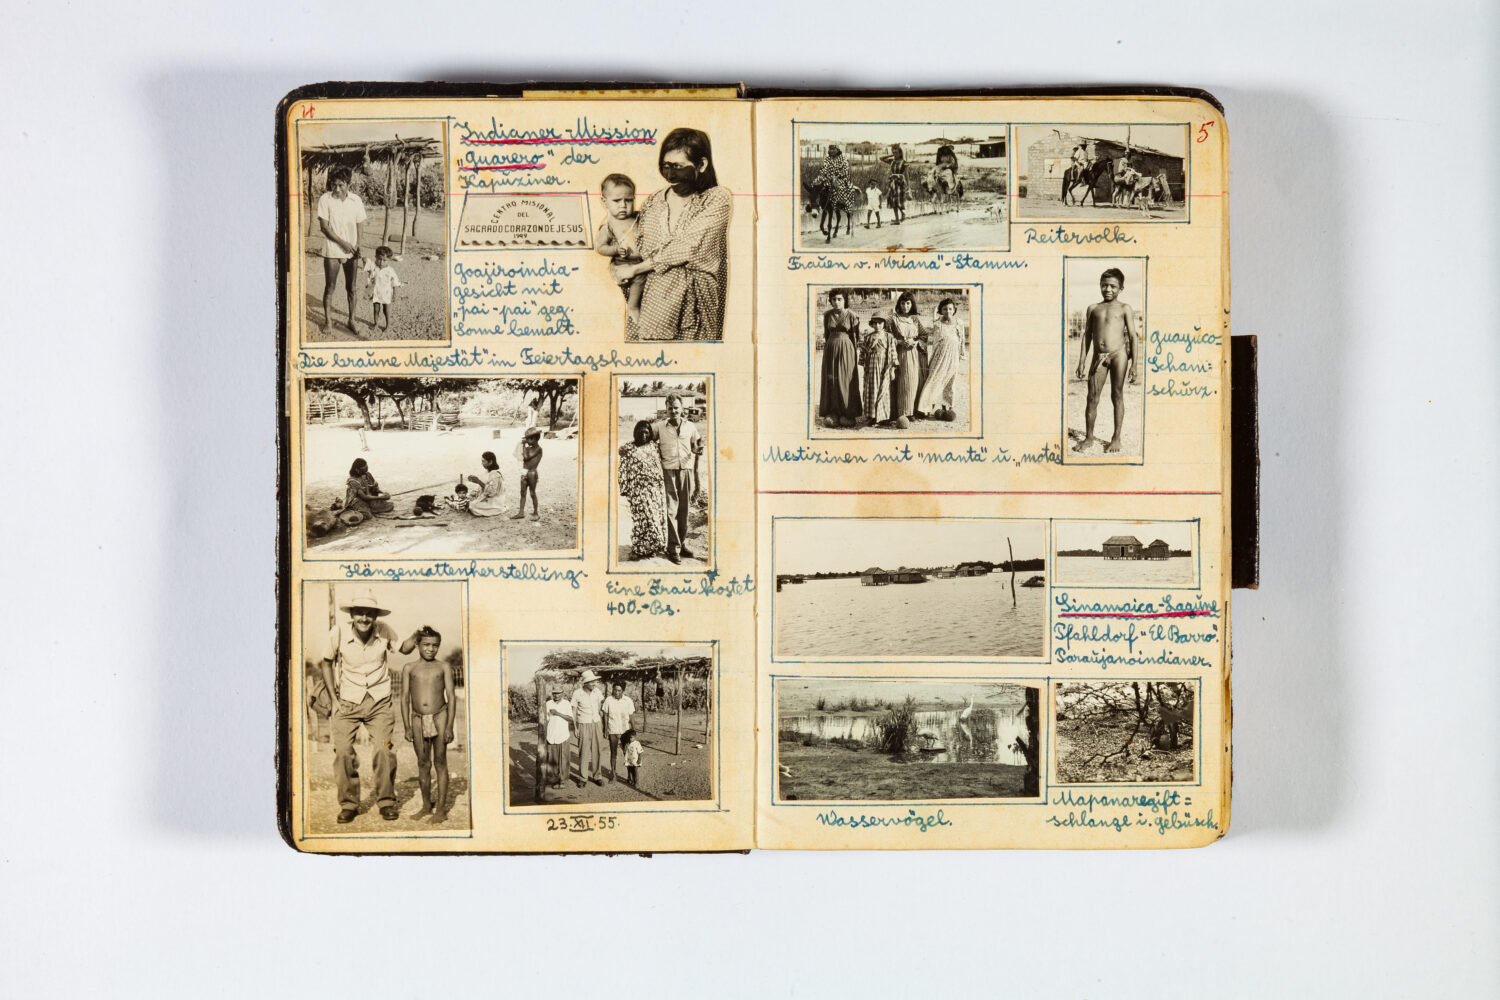 4
Indianer-Mission
„Guarero" der
Kapuziner.
CENTRO MISIONAL
DEL
SAGRADO CORAZON DE JESUS
1949
Goajiroindia-
gesicht mit
„pai-pai" geg.
Sonne bemalt.
„Die braune Majestät" im Feiertagshemd.
Hängemattenherstellung.
Eine Frau kostet
400.-Bs.
23.XII.55.
5
Reitervolk.
Frauen v. „Uriana"-Stamm.
guayuco=
Scham=
schürz.
Mestizinen mit „manta" u. „motas"
Sinamaica-Lagune
Pfahldorf „El Barro".
Paraujanoindianer.
Wasservögel.
Mapanaregift=
schlange i. gebüsch.